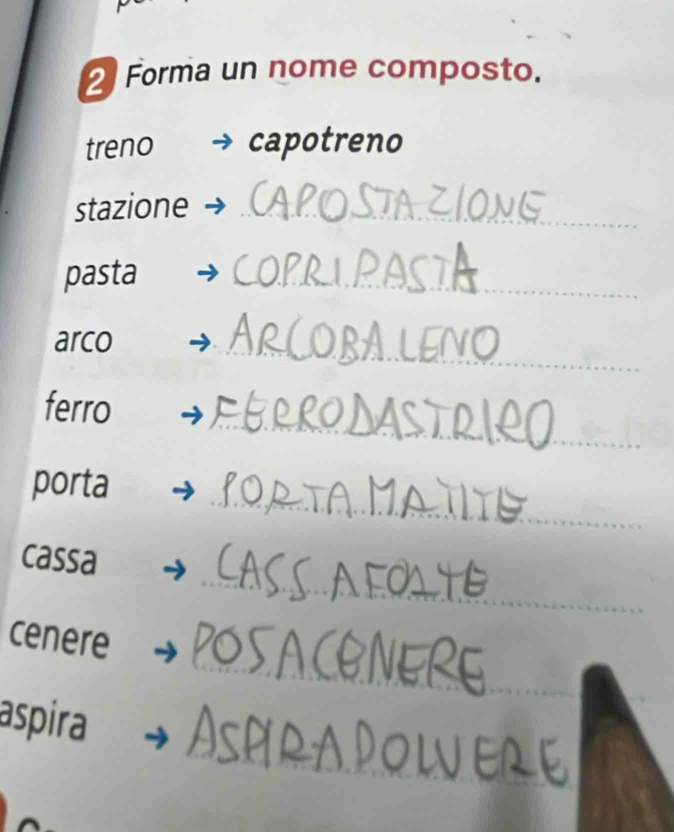 2 Forma un nome composto.
treno → capotreno
stazione → CAPOSTAZIONE
pasta → COPRIPASTA
arco → ARCOBALENO
ferro → FERRODASTRIRO
porta → PORTAMATITE
cassa → CASSAFORTE
cenere → POSACENERE
aspira → ASPIRAPOLVERE